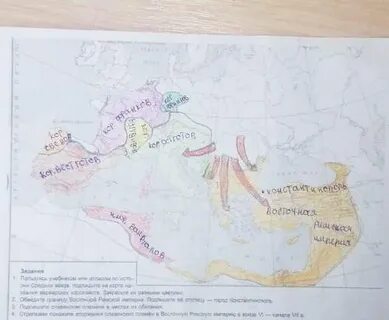 кор. свевов
кор. франков
кор. вестготов
кор. остготов
кор. вандалов
Константинополь
восточная
Римская
империя
Задания
1. Пользуясь учебником или атласом по исто-
рии Средних веков, подпишите на карте на-
звания варварских королевств. Закрасьте их разными цветами.
2. Обведите границу Восточной Римской империи. Подпишите её столицу — город Константинополь.
3. Подпишите славянские племена в местах их обитания.
4. Стрелками покажите вторжения славянских племён в Восточную Римскую империю в конце VI — начале VII в.